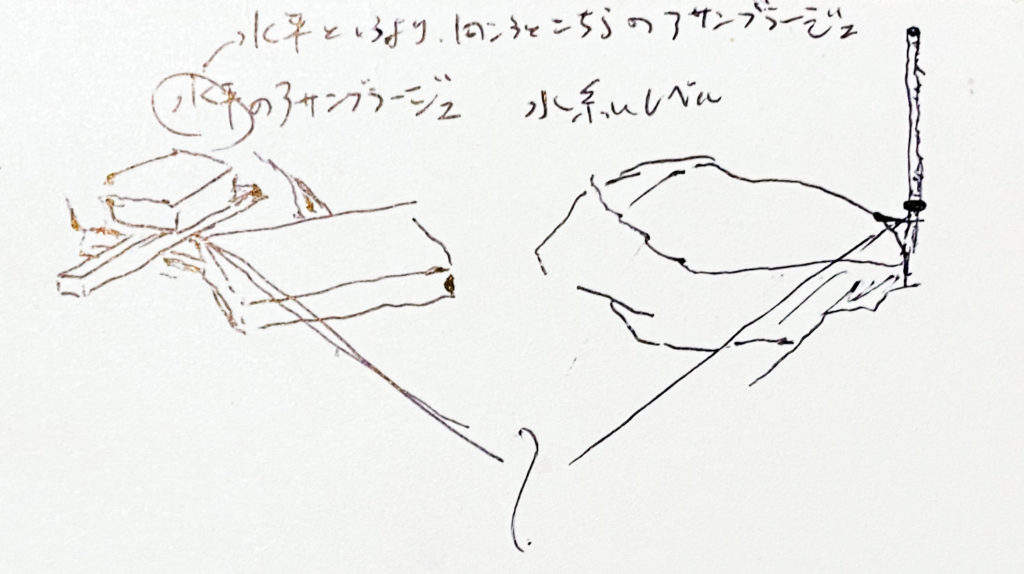 水平というより、こちらのアサンブラージュ
水平のアサンブラージュ 水糸レベル
?